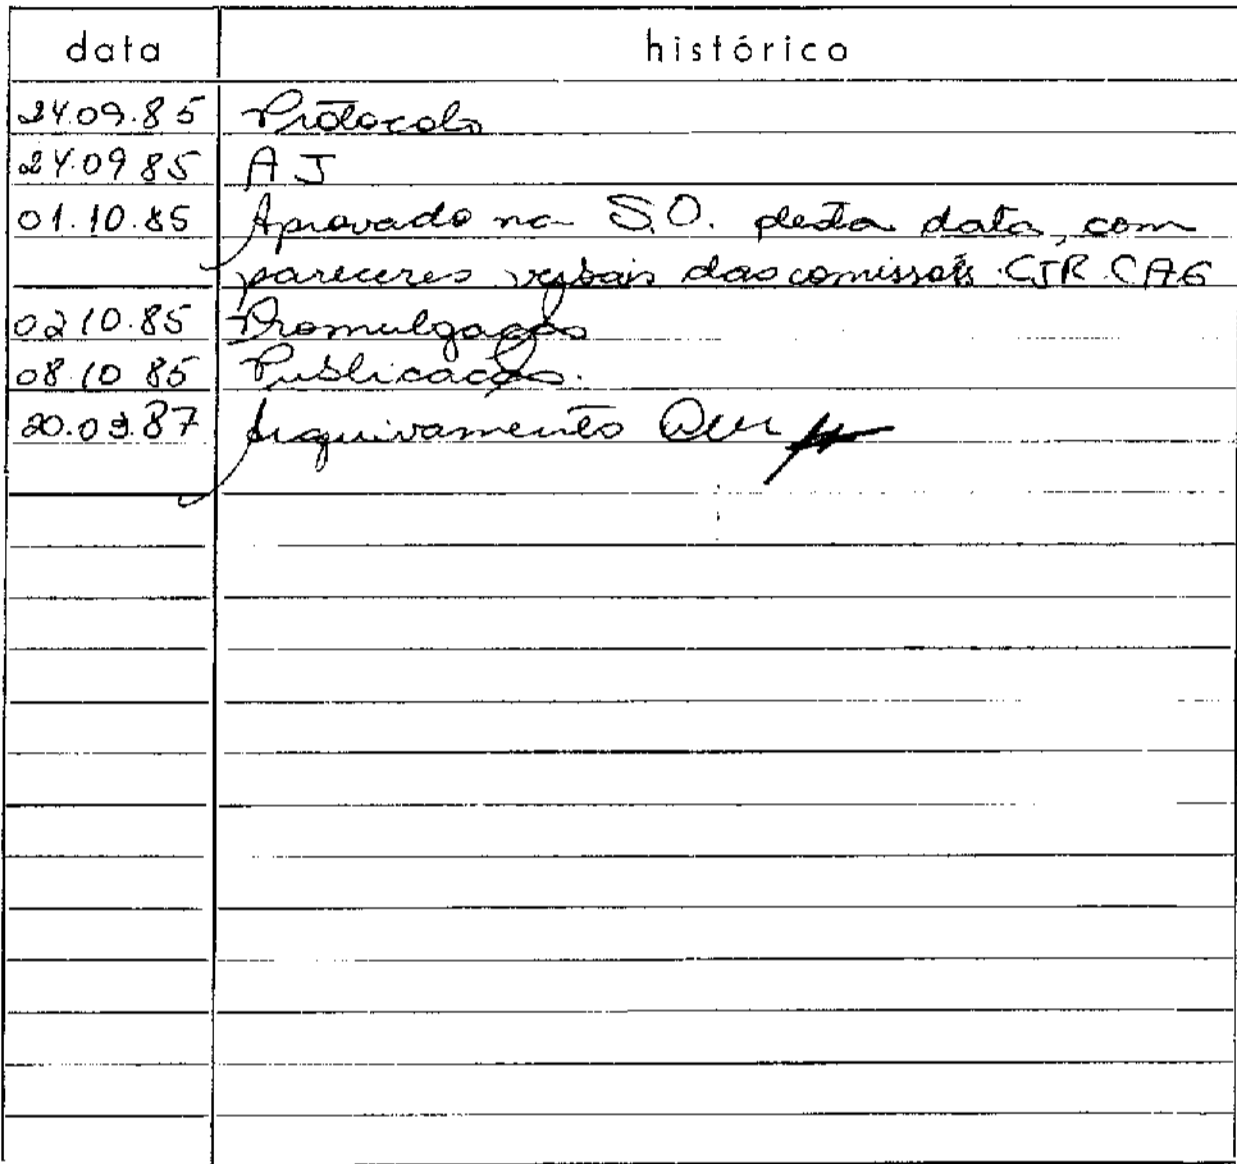 data histórico
24.09.85 Protocolo
24.09 85 A J
01.10.85 Aprovado na S.O. desta data, com
pareceres verbais das comissões CJR CAG
02 10.85 Promulgação
08.10 85 Publicação.
20.03.87 Arquivamento